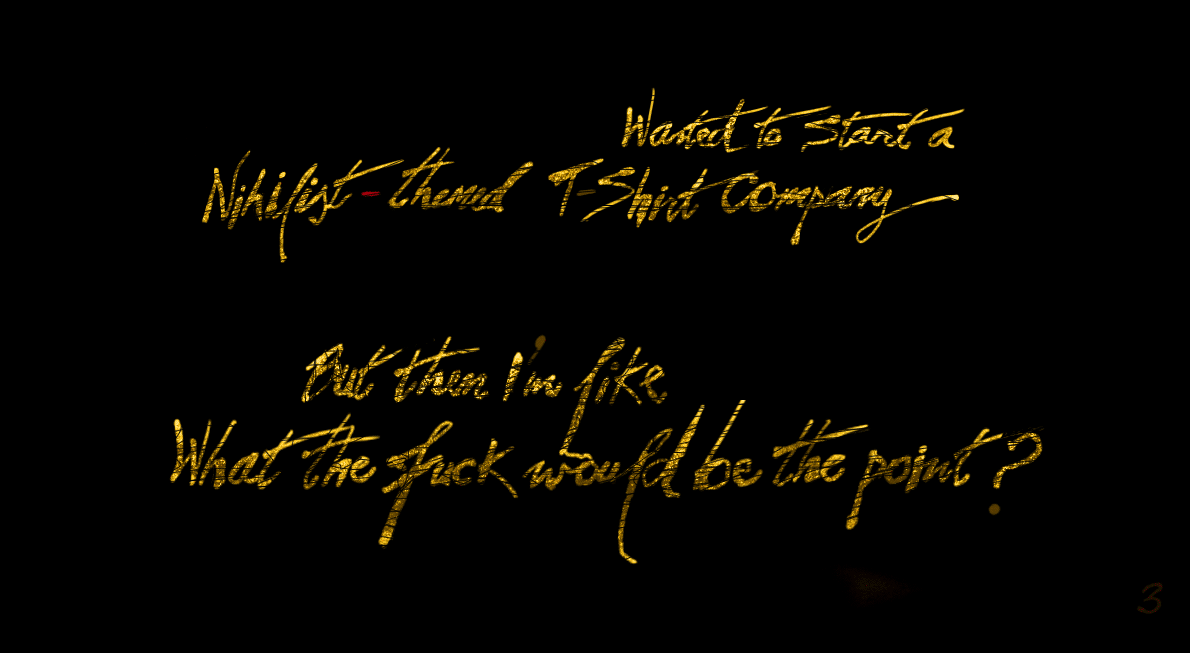 Wanted to Start a
Nihilist-themed T-Shirt Company
But then I'm like
What the fuck would be the point?
3